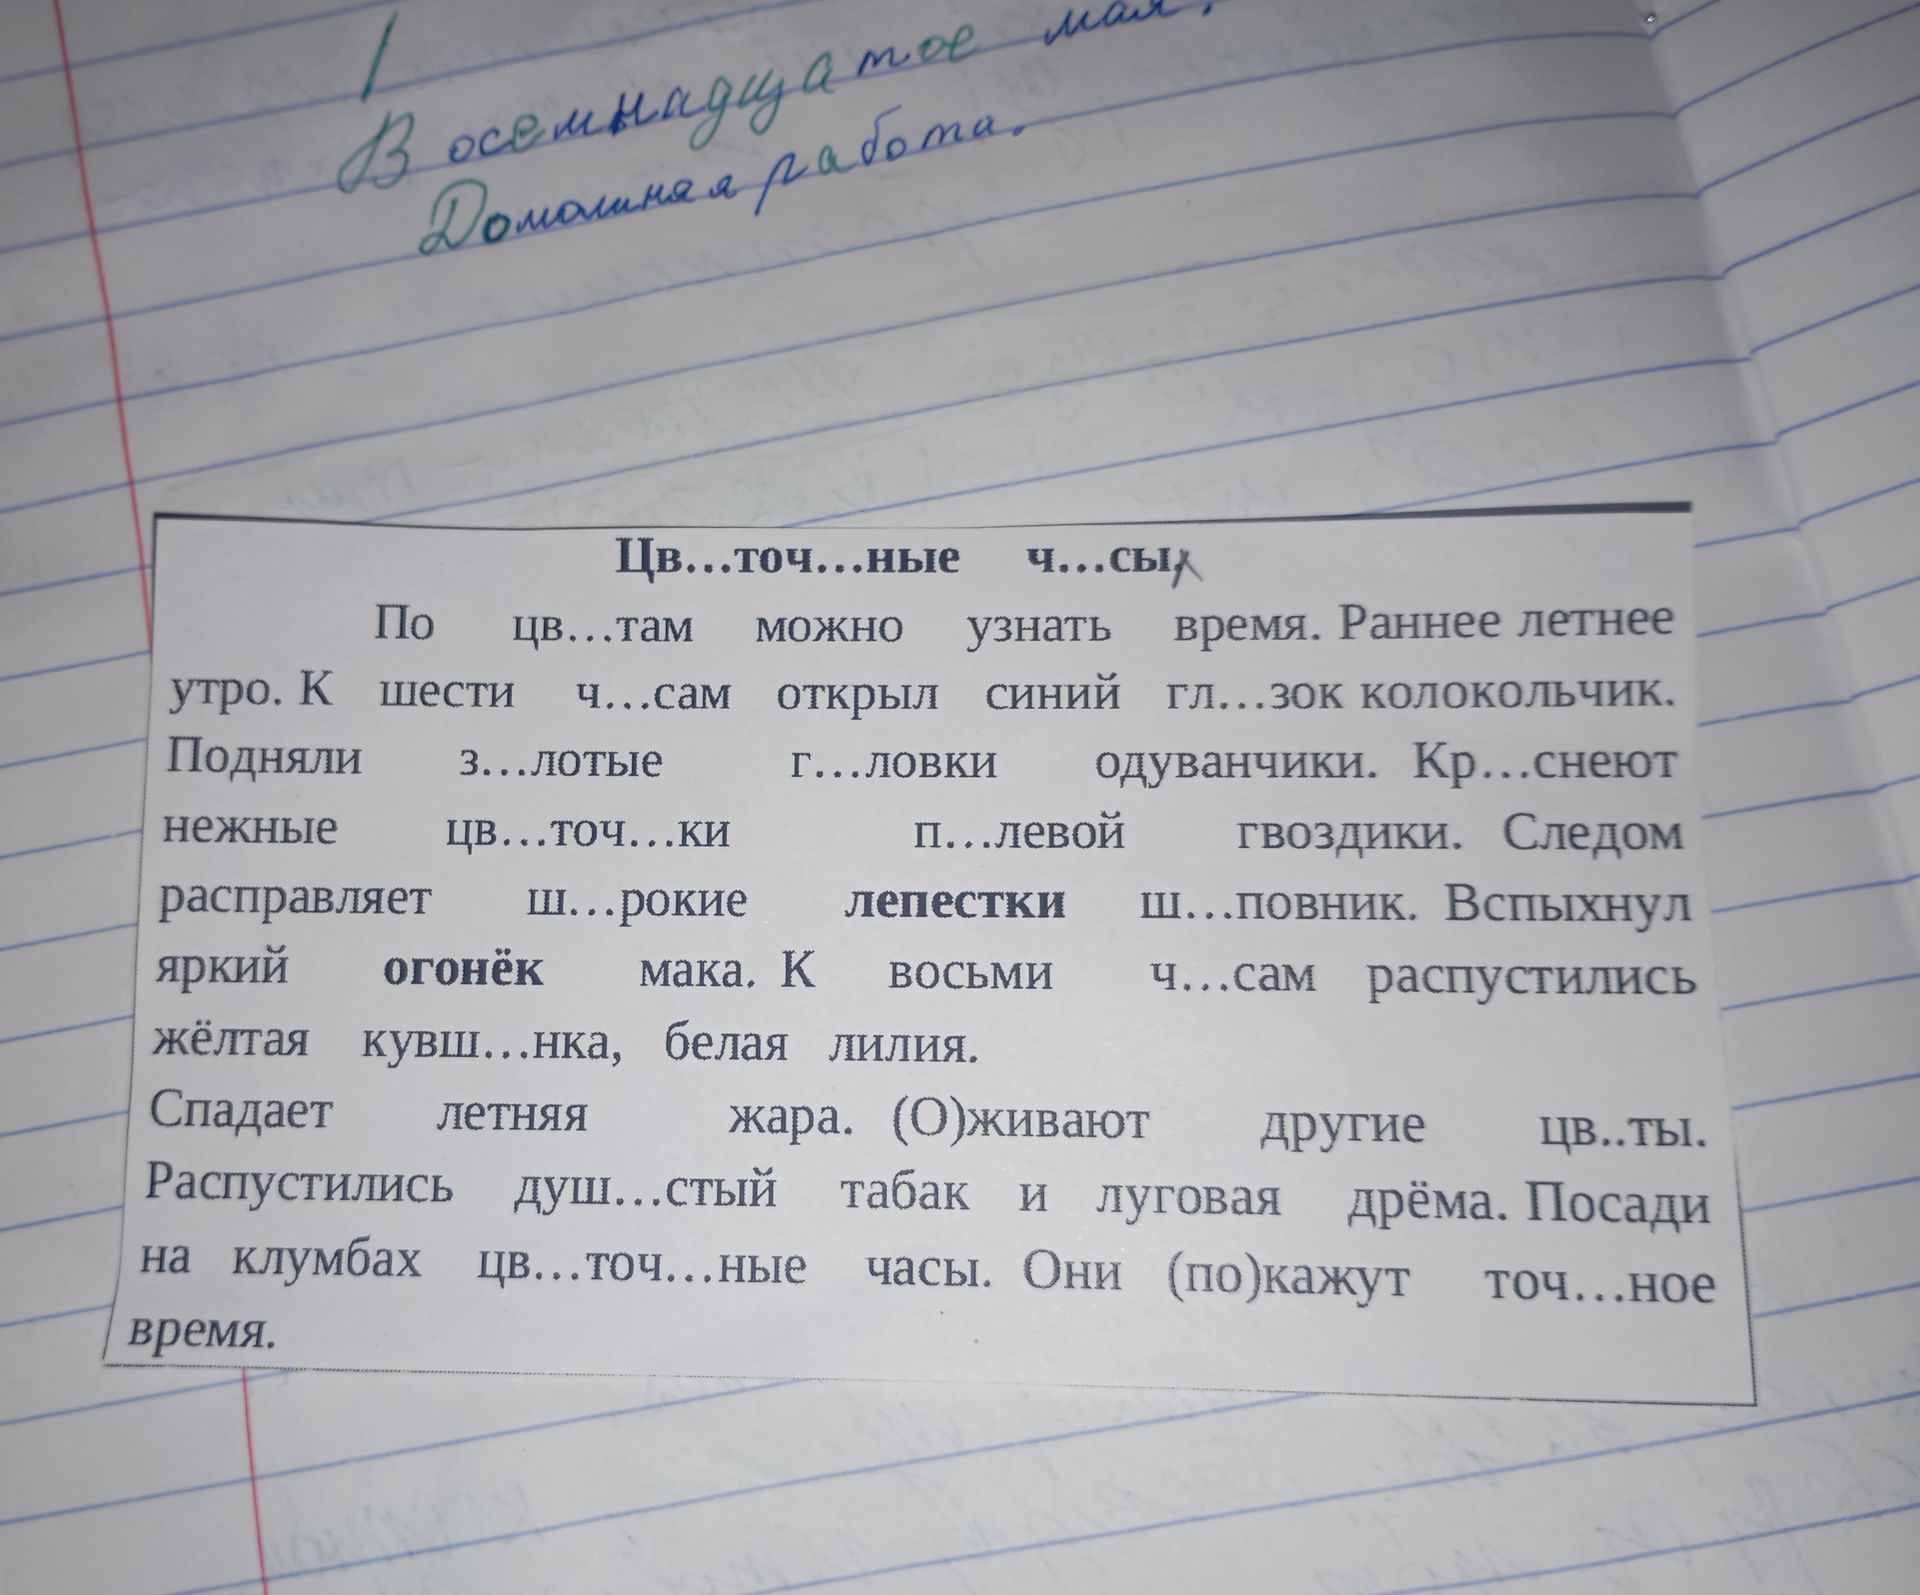 Восемнадцатое мая.
Домашняя работа.
Цв...точ...ные ч...сы
По цв...там можно узнать время. Раннее летнее
утро. К шести ч...сам открыл синий гл...зок колокольчик.
Подняли з...лотые г...ловки одуванчики. Кр...снеют
нежные цв...точ...ки п...левой гвоздики. Следом
расправляет ш...рокие лепестки ш...повник. Вспыхнул
яркий огонёк мака. К восьми ч...сам распустились
жёлтая кувш...нка, белая лилия.
Спадает летняя жара. (О)живают другие цв..ты.
Распустились душ...стый табак и луговая дрёма. Посади
на клумбах цв...точ...ные часы. Они (по)кажут точ...ное
время.